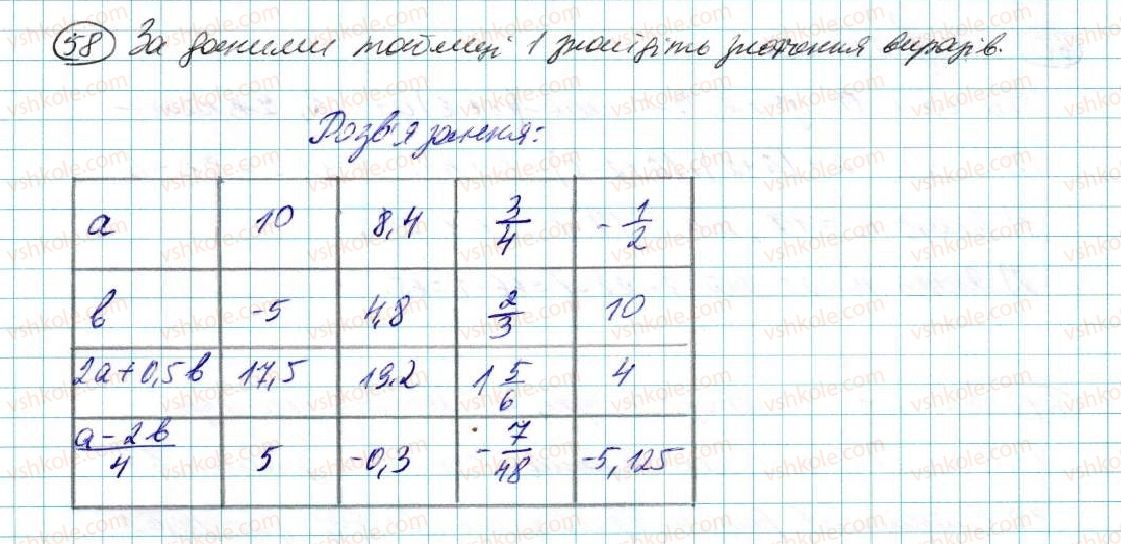 58 За даними таблиці 1 знайдіть значення виразів.
Розв'язання:
a 10 8,4 3/4 -1/2
b -5 4,8 2/3 10
2a+0,5b 17,5 19.2 1 5/6 4
a-2b/4 5 -0,3 -7/48 -5,125